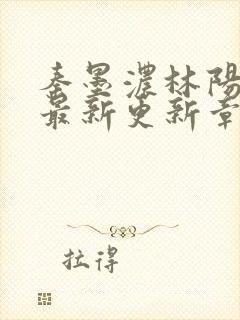 秦墨濃林陽
最新更新章
拉得